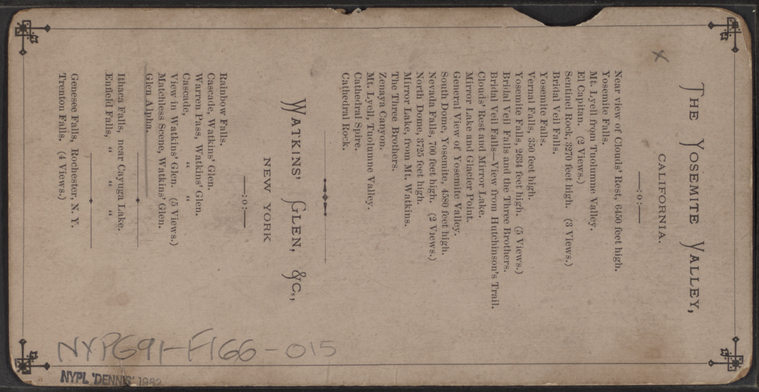 THE YOSEMITE VALLEY,
CALIFORNIA.
—:o:—
x
Near view of Clouds' Rest, 6450 feet high.
Yosemite Falls.
Mt. Lyell from Tuolumne Valley.
El Capitan. (2 Views.)
Sentinel Rock, 3270 feet high. (3 Views.)
Bridal Veil Falls.
Yosemite Falls.
Vernal Falls, 350 feet high.
Yosemite Falls, 2634 feet high. (5 Views.)
Bridal Veil Falls and the Three Brothers.
Bridal Veil Falls—View from Hutchinson's Trail.
Clouds' Rest and Mirror Lake.
Mirror Lake and Glacier Point.
General View of Yosemite Valley.
South Dome, Yosemite, 4580 feet high.
Nevada Falls, 700 feet high. (2 Views.)
North Dome, 3725 feet high.
Mirror Lake, from Mt. Watkins.
The Three Brothers.
Zenaya Canyon.
Mt. Lyell, Tuolumne Valley.
Cathedral Spire.
Cathedral Rock.
WATKINS' GLEN, &C.,
NEW YORK
—:o:—
Rainbow Falls.
Cascade, Watkins' Glen.
Warren Pass, Watkins' Glen.
Cascade, " "
View in Watkins' Glen. (5 Views.)
Matchless Scene, Watkins' Glen.
Glen Alpha.
Ithaca Falls, near Cayuga Lake.
Enfield Falls, " " "
Genesee Falls, Rochester, N. Y.
Trenton Falls. (4 Views.)
NYPG91-F166-015
NYPL 'DENNIS' 1982